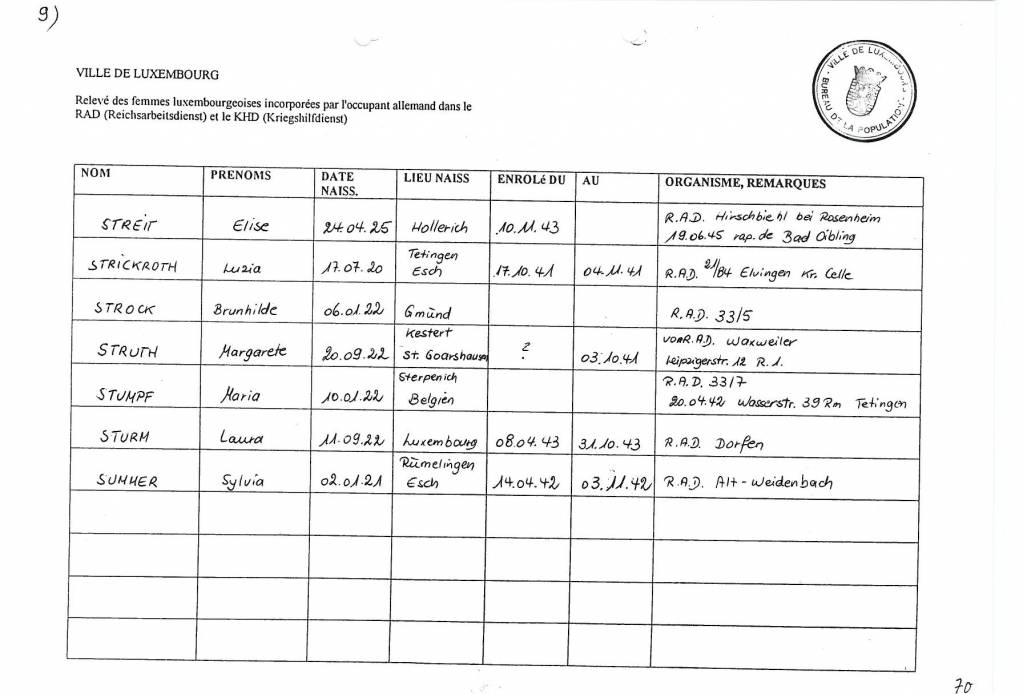 9)
VILLE DE LUXEMBOURG
VILLE DE LUXEMBOURG
BUREAU DE LA POPULATION
Relevé des femmes luxembourgeoises incorporées par l'occupant allemand dans le
RAD (Reichsarbeitsdienst) et le KHD (Kriegshilfdienst)
NOM PRENOMS DATE NAISS. LIEU NAISS ENROLé DU AU ORGANISME, REMARQUES
STREIT Elise 24.04.25 Hollerich 10.11.43 R.A.D. Hirschbiehl bei Rosenheim
19.06.45 rap. de Bad Aibling
STRICKROTH Luzia 17.07.20 Tetingen Esch 17.10.41 04.11.41 R.A.D. 21/84 Elvingen Kr. Celle
STROCK Brunhilde 06.01.22 Gmünd R.A.D. 33/5
STRUTH Margarete 20.09.22 Kestert St. Goarshausen ? 03.10.41 von R.A.D. Waxweiler
Leipzigerstr. 12 R.1.
STUMPF Maria 10.01.22 Sterpenich Belgien R.A.D. 33/7
20.04.42 Wasserstr. 39 Rm Tetingen
STURM Laura 11.09.22 Luxembourg 08.04.43 31.10.43 R.A.D. Dorfen
SUMMER Sylvia 02.01.21 Rümelingen Esch 14.04.42 03.11.42 R.A.D. Alt-Weidenbach
70